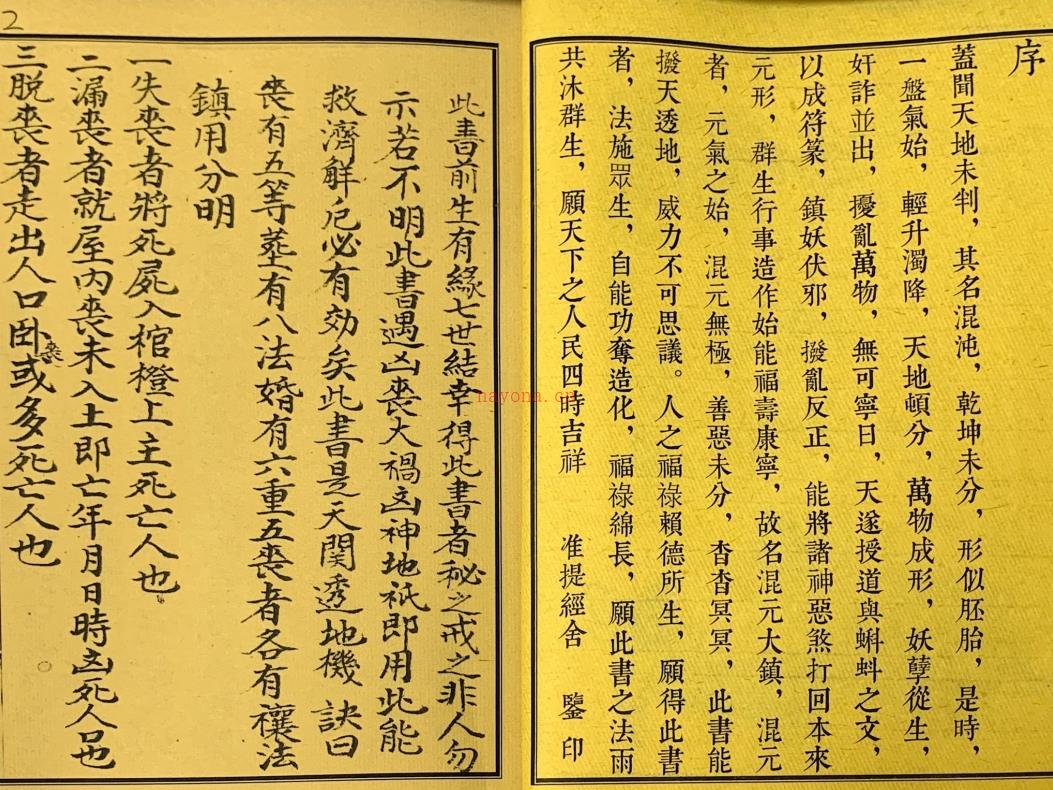 序
蓋聞天地未判，其名混沌，乾坤未分，形似胚胎，是時，
一盤氣始，輕升濁降，天地頓分，萬物成形，妖孽從生，
奸詐並出，擾亂萬物，無可寧日，天遂授道與蝌蚪之文，
以成符篆，鎮妖伏邪，撥亂反正，能將諸神惡煞打回本來
元形，群生行事造作始能福壽康寧，故名混元大鎮，混元
者，元氣之始，混元無極，善惡未分，杳杳冥冥，此書能
撥天透地，威力不可思議。人之福祿賴德所生，願得此書
者，法施眾生，自能功奪造化，福祿綿長，願此書之法雨
共沐群生，願天下之人民四時吉祥　准提經舍　鑒印
2
此書前生有緣七世結幸得此書者秘之戒之非人勿
示若不明此書遇凶喪大禍凶神地祇即用此能
救濟解厄必有効矣此書是天関透地機　訣曰
喪有五等葬有八法婚有六重五喪者各有禳法
鎮用分明
一失喪者將死屍入棺橙上主死亡人也
二漏喪者就屋內喪未入土即亡年月日時凶死人口也
三脱喪者走出人口卧喪或多死亡人也
nayona.cn